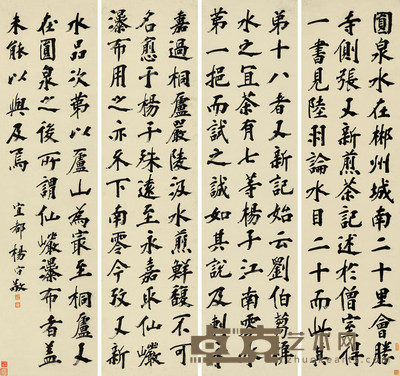 圓泉水在郴州城南二十里會勝
寺側張又新煎茶記述於僧室得
一書見陸羽論水目二十而此其
第十八者又新記始云劉伯芻
水之宜茶有七等楊子江南零
第一挹而試之誠如其說及刺
嘉過桐廬嚴陵汲水煎鮮馥不可
名愈于楊子殊遠至永嘉取仙巖
瀑布用之亦不下南零今攷又新
水品次第以廬山為最至桐廬又
在圓泉之後所謂仙巖瀑布者蓋
未能以與及焉
宜都楊守敬